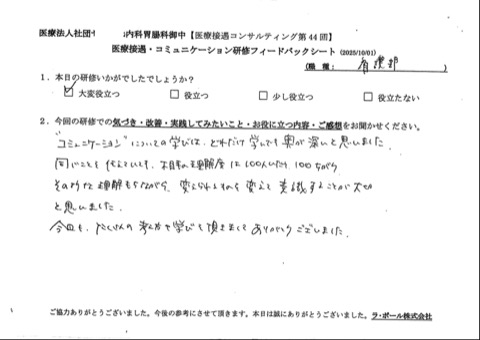 医療法人社団
内科胃腸科御中【医療接遇コンサルティング第44回】
医療接遇・コミュニケーション研修フィードバックシート (2025/10/01)
(職種: 看護部)
1. 本日の研修いかがでしたでしょうか?
☑大変役立つ □役立つ □少し役立つ □役立たない
2. 今回の研修での気づき・改善・実践してみたいこと・お役に立つ内容・ご感想をお聞かせください。
"コミュニケーション"についての学びは、どれだけ学んでも奥が深いと思いました。
同じことを伝えていても、相手の理解度は100人いたら100ちがう
そのような理解をもちながら、変えられるものから変えて意識することが大切
と思いました。
今回も、たくさんの考え方を学びを頂きまして ありがとうございました。
ご協力ありがとうございました。今後の参考にさせて頂きます。本日は誠にありがとうございました。ラ・ポール株式会社